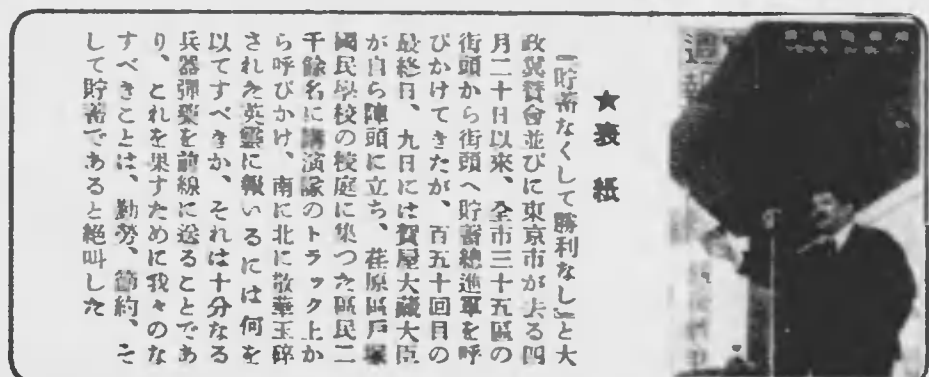 ★表紙
『貯蓄なくして勝利なし』と大
政翼賛會並びに東京市が去る四
月二十日以來、全市三十五區の
街頭から街頭へ貯蓄總進軍を呼
びかけてきたが、百五十回目の
最終日、九日には賀屋大藏大臣
が自ら陣頭に立ち、荏原區戸塚
國民學校の校庭に集つた區民二
千餘名に講演隊のトラック上か
ら呼びかけ、南に北に散華玉碎
された英靈に報いるには何を
以てすべきか、それは十分なる
兵器彈藥を前線に送ることであ
り、これを果すために我々のな
すべきことは、勤勞、節約、そ
して貯蓄であると絶叫した
週